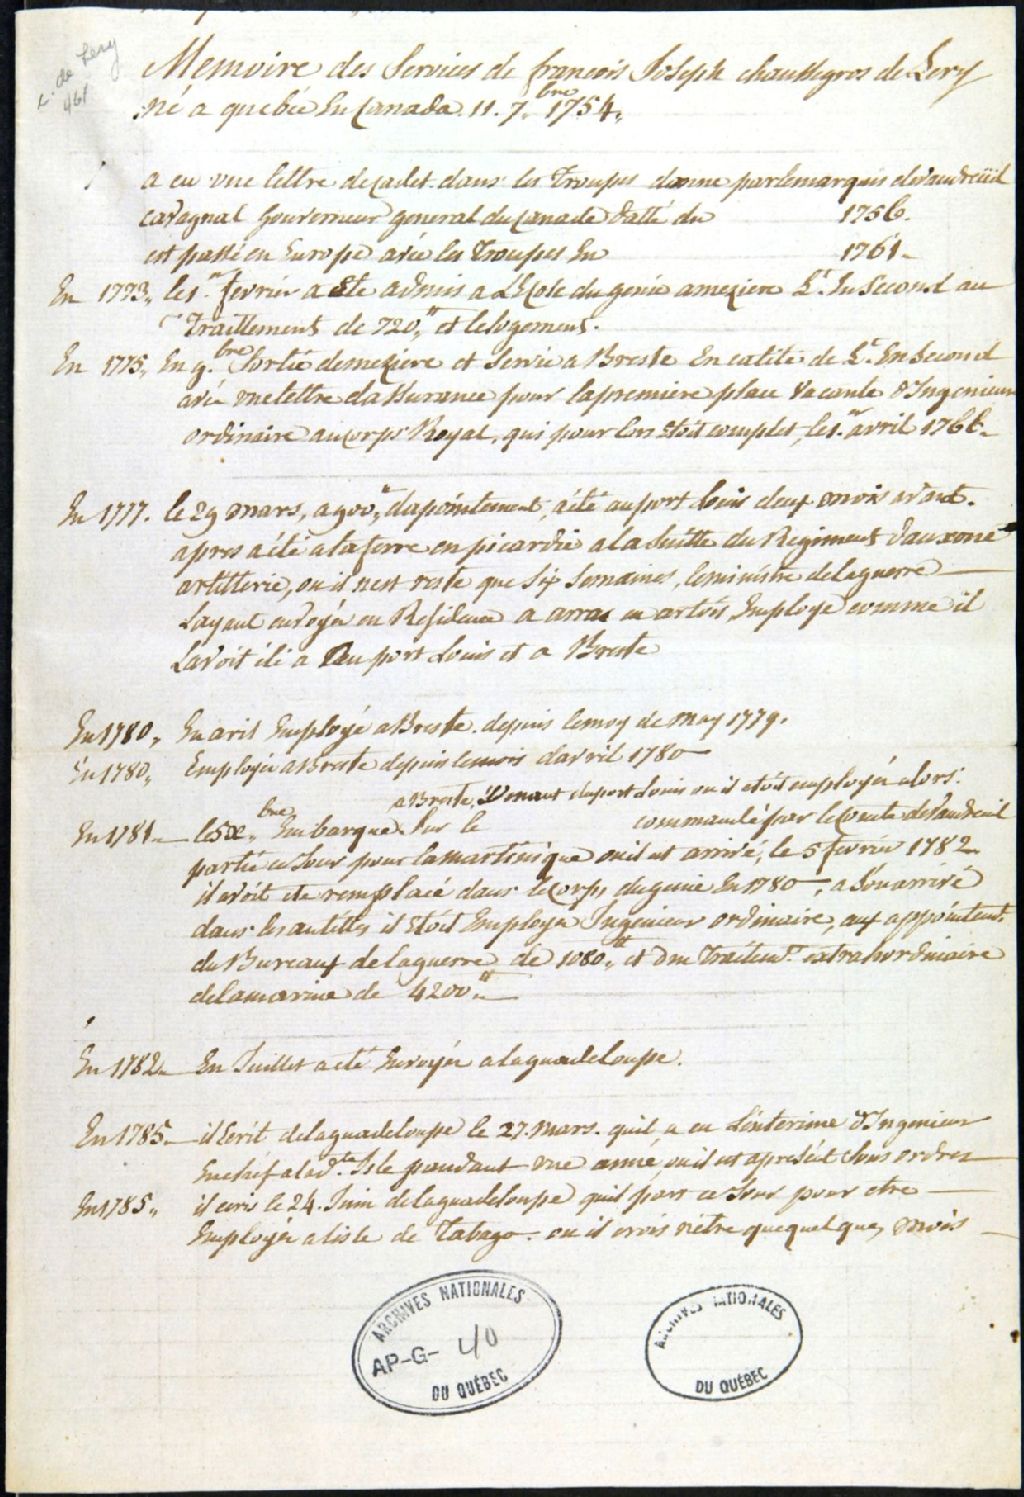 C. de Lery
461
Memoire des Services de francois Joseph chaussegros de Lery
né a quebéc En Canada 11. 7.bre 1754,
a eu vne lettre de cadet dans les Troupes donne par le marquis devaudreüil
cavagnal Gouverneur general du canada datté du 1756.
est passé en Europe avéc les Troupes En 1761.
En 1773, le 1.r fevriér a Eté admis a L'Ecole du genie a mezierre Lt. En Second au
Traittement de 720,tt et le logement.
En 1775, En 9.bre Sortie demeziere et Servie a Breste En calité de Lt. En Second
avéc vne lettre dassurrance pour lapremiere place Vacante d'Ingenieur
ordinaire au corps Royal, qui pour lors Etoit complet, le 1.er avril 1766.
En 1777. le 29 mars, a 900,tt dapointement, a été au port Louis deux mois avant.
apres a été a la ferre en picardie a la Suitte du Regiment dauxone
artillerie, ou il nest resté que Six Semaines, leministre de la guerre
Layant envoyér en Residence a arras en artois Employé comme il
Lavoit été a au port Louis et a Breste
En 1780, En avril Employé a Breste depuis lemoy de may 1779.
En 1780, Employér a Breste depuis lemois davril 1780
a Breste, Venant du port Louis ou il etoit employér alors.
En 1781 le bre Embarqué Sur le commandé par le Comte de Vaudreuil
partie ce Jour pour lamartinique ou il est arrivé, le 5 fevriér 1782
il avoit ete remplacé dans le corps dugenie En 1780, a Son arrivé
dans les antilles il Etoit Employér Ingenieur ordinaire, aux appointent.
du Bureaux de la guerre de 1080,tt et dun Traitemt. extrahordinaire
de la marine de 4200,tt
En 1782 En Juillet a eté Envoyér a la guadeloupe.
En 1785 il Ecrit de la guadeloupe le 27. mars. quil a eu Linterime d'Ingenieur
Enchéf a lad.te Isle pandant vne année, ou il est apresent Sous ordres
En 1785, il ecris le 24. Juin de la guadeloupe quil part ce Jour pour etre
Employér a lisle de Tabago. ou il crois nétre que quelques, mois
ARCHIVES NATIONALES
AP-G- 40
DU QUÉBEC
ARCHIVES NATIONALES
DU QUÉBEC